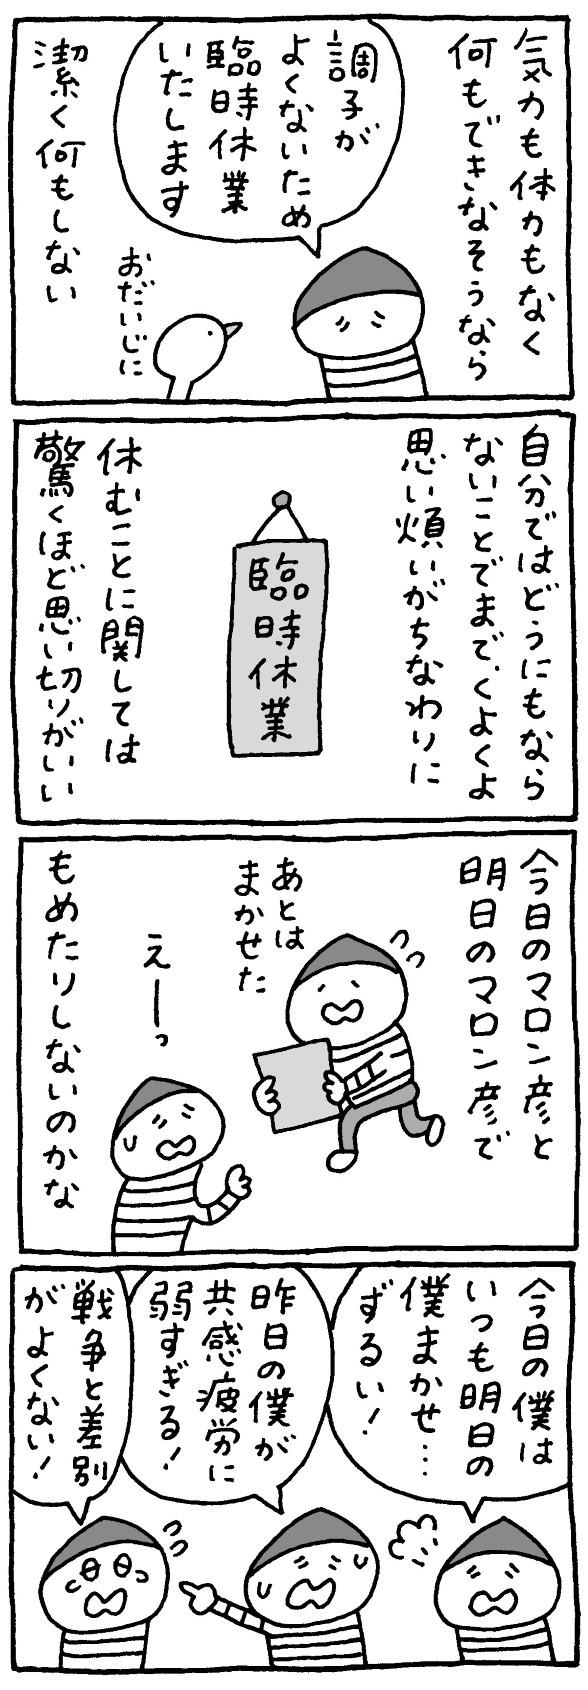 気力も体力もなく
何もできなそうなら
調子が
よくないため
臨時休業
いたします
おだいじに
潔く何もしない
自分ではどうにもなら
ないことでまで、くよくよ
思い煩いがちなわりに
臨時休業
休むことに関しては
驚くほど思い切りがいい
今日のマロン彦と
明日のマロン彦で
あとは
まかせた
えーっ
もめたりしないのかな
今日の僕は
いつも明日の
僕まかせ…
ずるい!
昨日の僕が
共感疲労に
弱すぎる!
戦争と差別
がよくない!